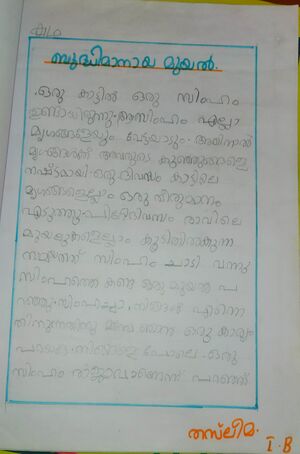 കഥ
ബുദ്ധിമാനായ മുയൽ.
ഒരു കാട്ടിൽ ഒരു സിംഹം
ഉണ്ടായിരുന്നു. ആസിംഹം എല്ലാ
മൃഗങ്ങളെയും വേട്ടയാടും. അതിനാൽ
മൃഗങ്ങൾക്ക് അവരുടെ കുഞ്ഞുങ്ങളെ
നഷ്ടമായി. ഒരു ദിവസം കാട്ടിലെ
മൃഗങ്ങളെല്ലാം ഒരു തീരുമാനം
എടുത്തു. പിറ്റേദിവസം രാവിലെ
മുയലുകളെല്ലാം കൂടിനിൽകുന്ന
സമയത്ത് സിംഹം ചാടി വന്നു
സിംഹത്തെ കണ്ട ഒരു മുയൽ പ
റഞ്ഞു. നിങ്ങൾ എന്നെ
തിന്നുന്നതിനു മുമ്പ് ഞാൻ ഒരു കാര്യം
പറയട്ടെ. നിങ്ങളെ പോലെ ഒരു
സിംഹം രാജാവാണെന്ന് പറഞ്ഞ്
തസ്ലീമ.
I.B